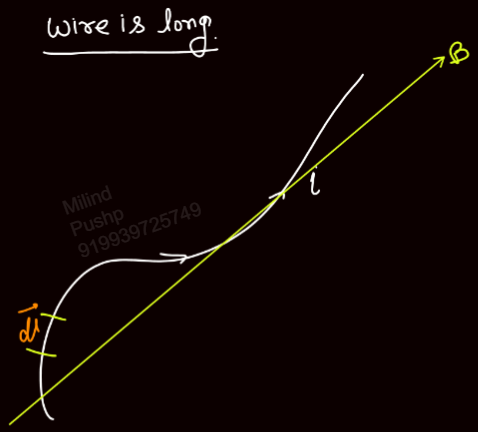 wire is long.
B
i
Milind
Pushp
919939725749
dl